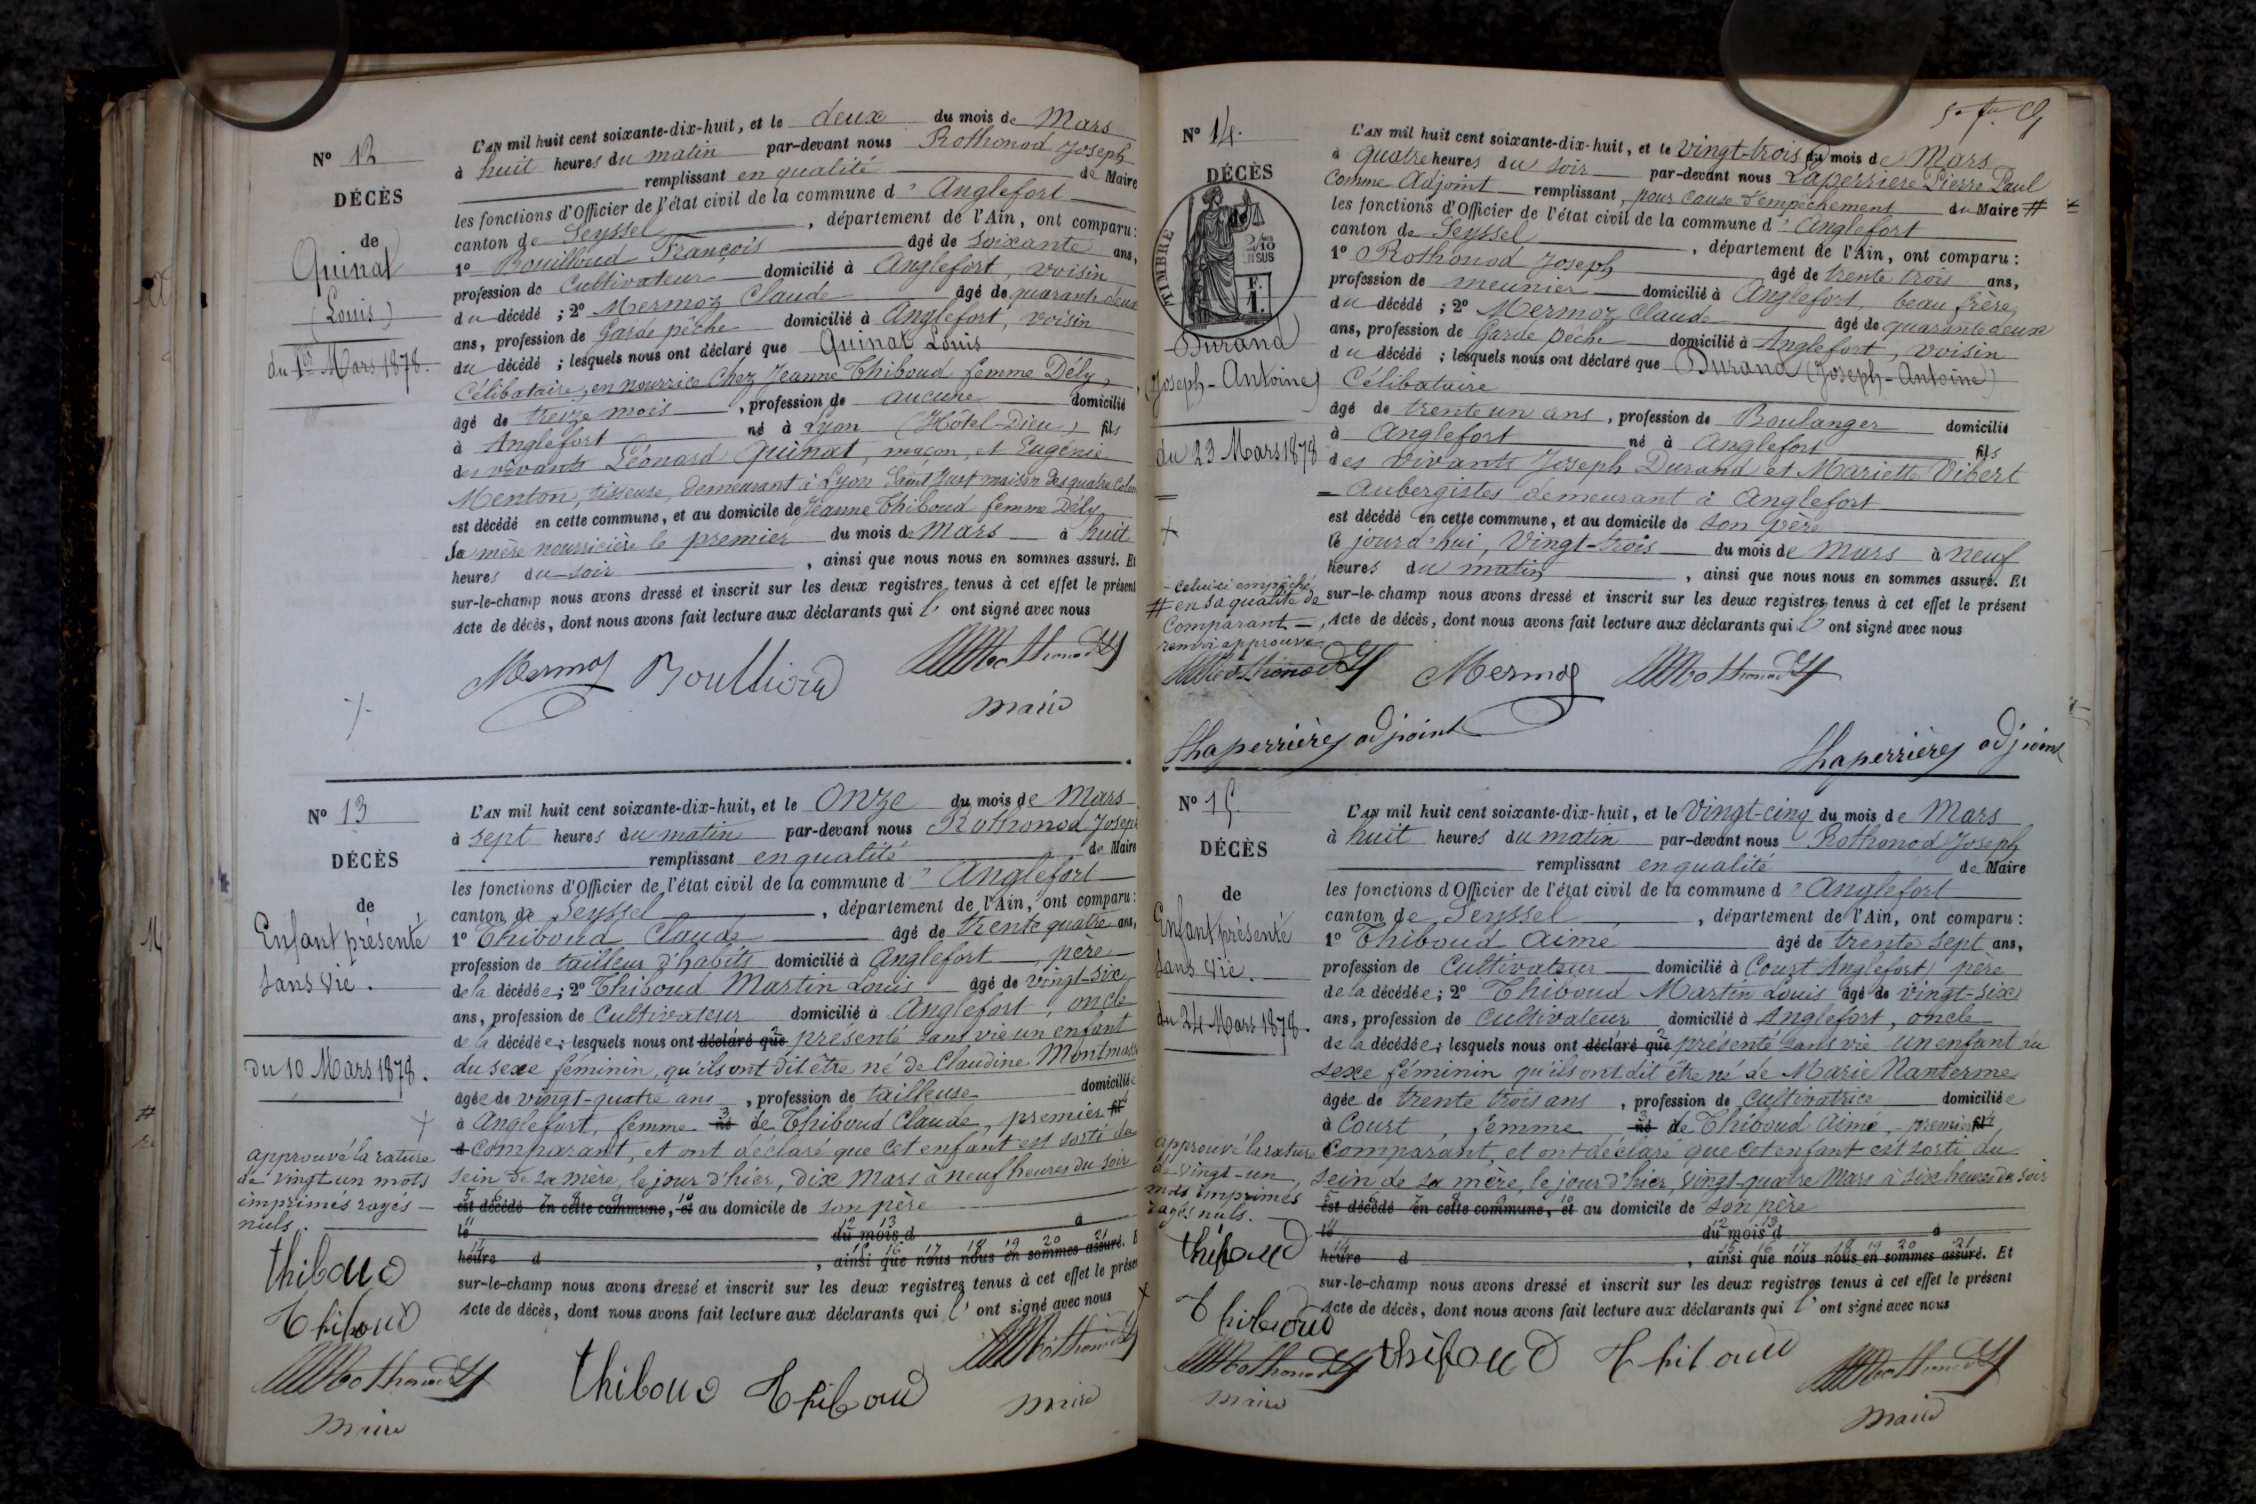 N° 12
DÉCÈS
de
Quinat
(Louis)
du 1er Mars 1878.
L'AN mil huit cent soixante-dix-huit, et le deux du mois de Mars
à huit heures du matin par-devant nous Rothonod Joseph
remplissant en qualité de Maire
les fonctions d'Officier de l'état civil de la commune d'Anglefort
canton de Seyssel, département de l'Ain, ont comparu:
1° Bouilloud François âgé de soixante ans,
profession de Cultivateur domicilié à Anglefort, voisin
du décédé; 2° Mermoz Claude âgé de quarante deux
ans, profession de Garde pêche domicilié à Anglefort, voisin
du décédé; lesquels nous ont déclaré que Quinat Louis
Célibataire, en nourrice chez Jeanne Thiboud femme Dély,
âgé de treize mois, profession de aucune domicilié
à Anglefort né à Lyon (Hôtel-Dieu) fils
des vivants Léonard Quinat, maçon, et Eugénie
Menton, tisseuse, demeurant à Lyon Saint Just maison des quatre
est décédé en cette commune, et au domicile de Jeanne Thiboud femme Dély
sa mère nourricière le premier du mois de Mars à huit
heures du soir, ainsi que nous nous en sommes assuré. Et
sur-le-champ nous avons dressé et inscrit sur les deux registres tenus à cet effet le présent
Acte de décès, dont nous avons fait lecture aux déclarants qui l'ont signé avec nous
Mermoz Bouilloud Rothonod
maire
N° 13
DÉCÈS
de
Enfant présenté
sans vie.
du 10 Mars 1878.
approuvé la rature
de vingt un mots
imprimés rayés
nuls.
Thiboud
Thiboud
Rothonod
maire
L'AN mil huit cent soixante-dix-huit, et le Onze du mois de Mars
à sept heures du matin par-devant nous Rothonod Joseph
remplissant en qualité de Maire
les fonctions d'Officier de l'état civil de la commune d'Anglefort
canton de Seyssel, département de l'Ain, ont comparu:
1° Thiboud Claude âgé de trente quatre ans,
profession de tailleur d'habits domicilié à Anglefort, père
de la décédée; 2° Thiboud Martin Louis âgé de vingt-six
ans, profession de Cultivateur domicilié à Anglefort, oncle
de la décédée; lesquels nous ont déclaré que présenté sans vie un enfant
du sexe féminin, qu'ils ont dit être né de Claudine
âgée de vingt-quatre ans, profession de tailleuse domiciliée
à Anglefort, femme né de Thiboud Claude, premier fil
d comparant, et ont déclaré que cet enfant est sorti du
sein de sa mère, le jour d'hier, dix Mars à neuf heures du soir
est décédé en cette commune, et au domicile de son père
le du mois d à
heure d, ainsi que nous nous en sommes assuré. E
sur-le-champ nous avons dressé et inscrit sur les deux registres tenus à cet effet le présent
Acte de décès, dont nous avons fait lecture aux déclarants qui l'ont signé avec nous
Thiboud Thiboud Rothonod
maire
N° 14.
DÉCÈS
de
TIMBRE
2/10
EN SUS
F.
1.
Durand
(Joseph-Antoine)
du 23 Mars 1878
L'AN mil huit cent soixante-dix-huit, et le vingt-trois du mois de Mars
à quatre heures du soir par-devant nous Laperrière Pierre Paul
Comme Adjoint remplissant, pour cause d'empêchement du Maire #
les fonctions d'Officier de l'état civil de la commune d'Anglefort
canton de Seyssel, département de l'Ain, ont comparu:
1° Rothonod Joseph âgé de trente trois ans,
profession de meunier domicilié à Anglefort, beau frère
du décédé; 2° Mermoz Claude âgé de quarante deux
ans, profession de Garde pêche domicilié à Anglefort, voisin
du décédé; lesquels nous ont déclaré que Durand (Joseph-Antoine)
Célibataire
âgé de trente un ans, profession de Boulanger domicilié
à Anglefort né à Anglefort fils
des vivants Joseph Durand et Mariette Vibert
= Aubergistes demeurant à Anglefort
est décédé en cette commune, et au domicile de son père
le jour d'hui, Vingt-trois du mois de Mars à neuf
heures du matin, ainsi que nous nous en sommes assuré. Et
sur-le-champ nous avons dressé et inscrit sur les deux registres tenus à cet effet le présent
Acte de décès, dont nous avons fait lecture aux déclarants qui l'ont signé avec nous
- celui-ci empêché
# en sa qualité de
Comparant =,
renvoi approuvé
Rothonod Mermoz Rothonod
Laperrière adjoint
Laperrière adjoint
N° 15
DÉCÈS
de
Enfant présenté
sans vie.
du 24 Mars 1878.
approuvé la rature
de vingt-un
mots imprimés
rayés nuls.
Thiboud
Thiboud
Rothonod
maire
L'AN mil huit cent soixante-dix-huit, et le Vingt-cinq du mois de Mars
à huit heures du matin par-devant nous Rothonod Joseph
remplissant en qualité de Maire
les fonctions d'Officier de l'état civil de la commune d'Anglefort
canton de Seyssel, département de l'Ain, ont comparu:
1° Thiboud Aimé âgé de trente sept ans,
profession de Cultivateur domicilié à Court (Anglefort) père
de la décédée; 2° Thiboud Martin Louis âgé de vingt-six
ans, profession de Cultivateur domicilié à Anglefort, oncle
de la décédée; lesquels nous ont déclaré que présenté sans vie un enfant du
sexe féminin qu'ils ont dit être né de Marie Nanterme
âgée de trente trois ans, profession de Cultivatrice domiciliée
à Court, femme né de Thiboud Aimé, premier fil
Comparant, et ont déclaré que cet enfant est sorti du
sein de sa mère, le jour d'hier, vingt-quatre Mars à six heures du soir
est décédé en cette commune, et au domicile de son père
le du mois d à
heure d, ainsi que nous nous en sommes assuré. Et
sur-le-champ nous avons dressé et inscrit sur les deux registres tenus à cet effet le présent
Acte de décès, dont nous avons fait lecture aux déclarants qui l'ont signé avec nous
Thiboud Thiboud Rothonod
maire